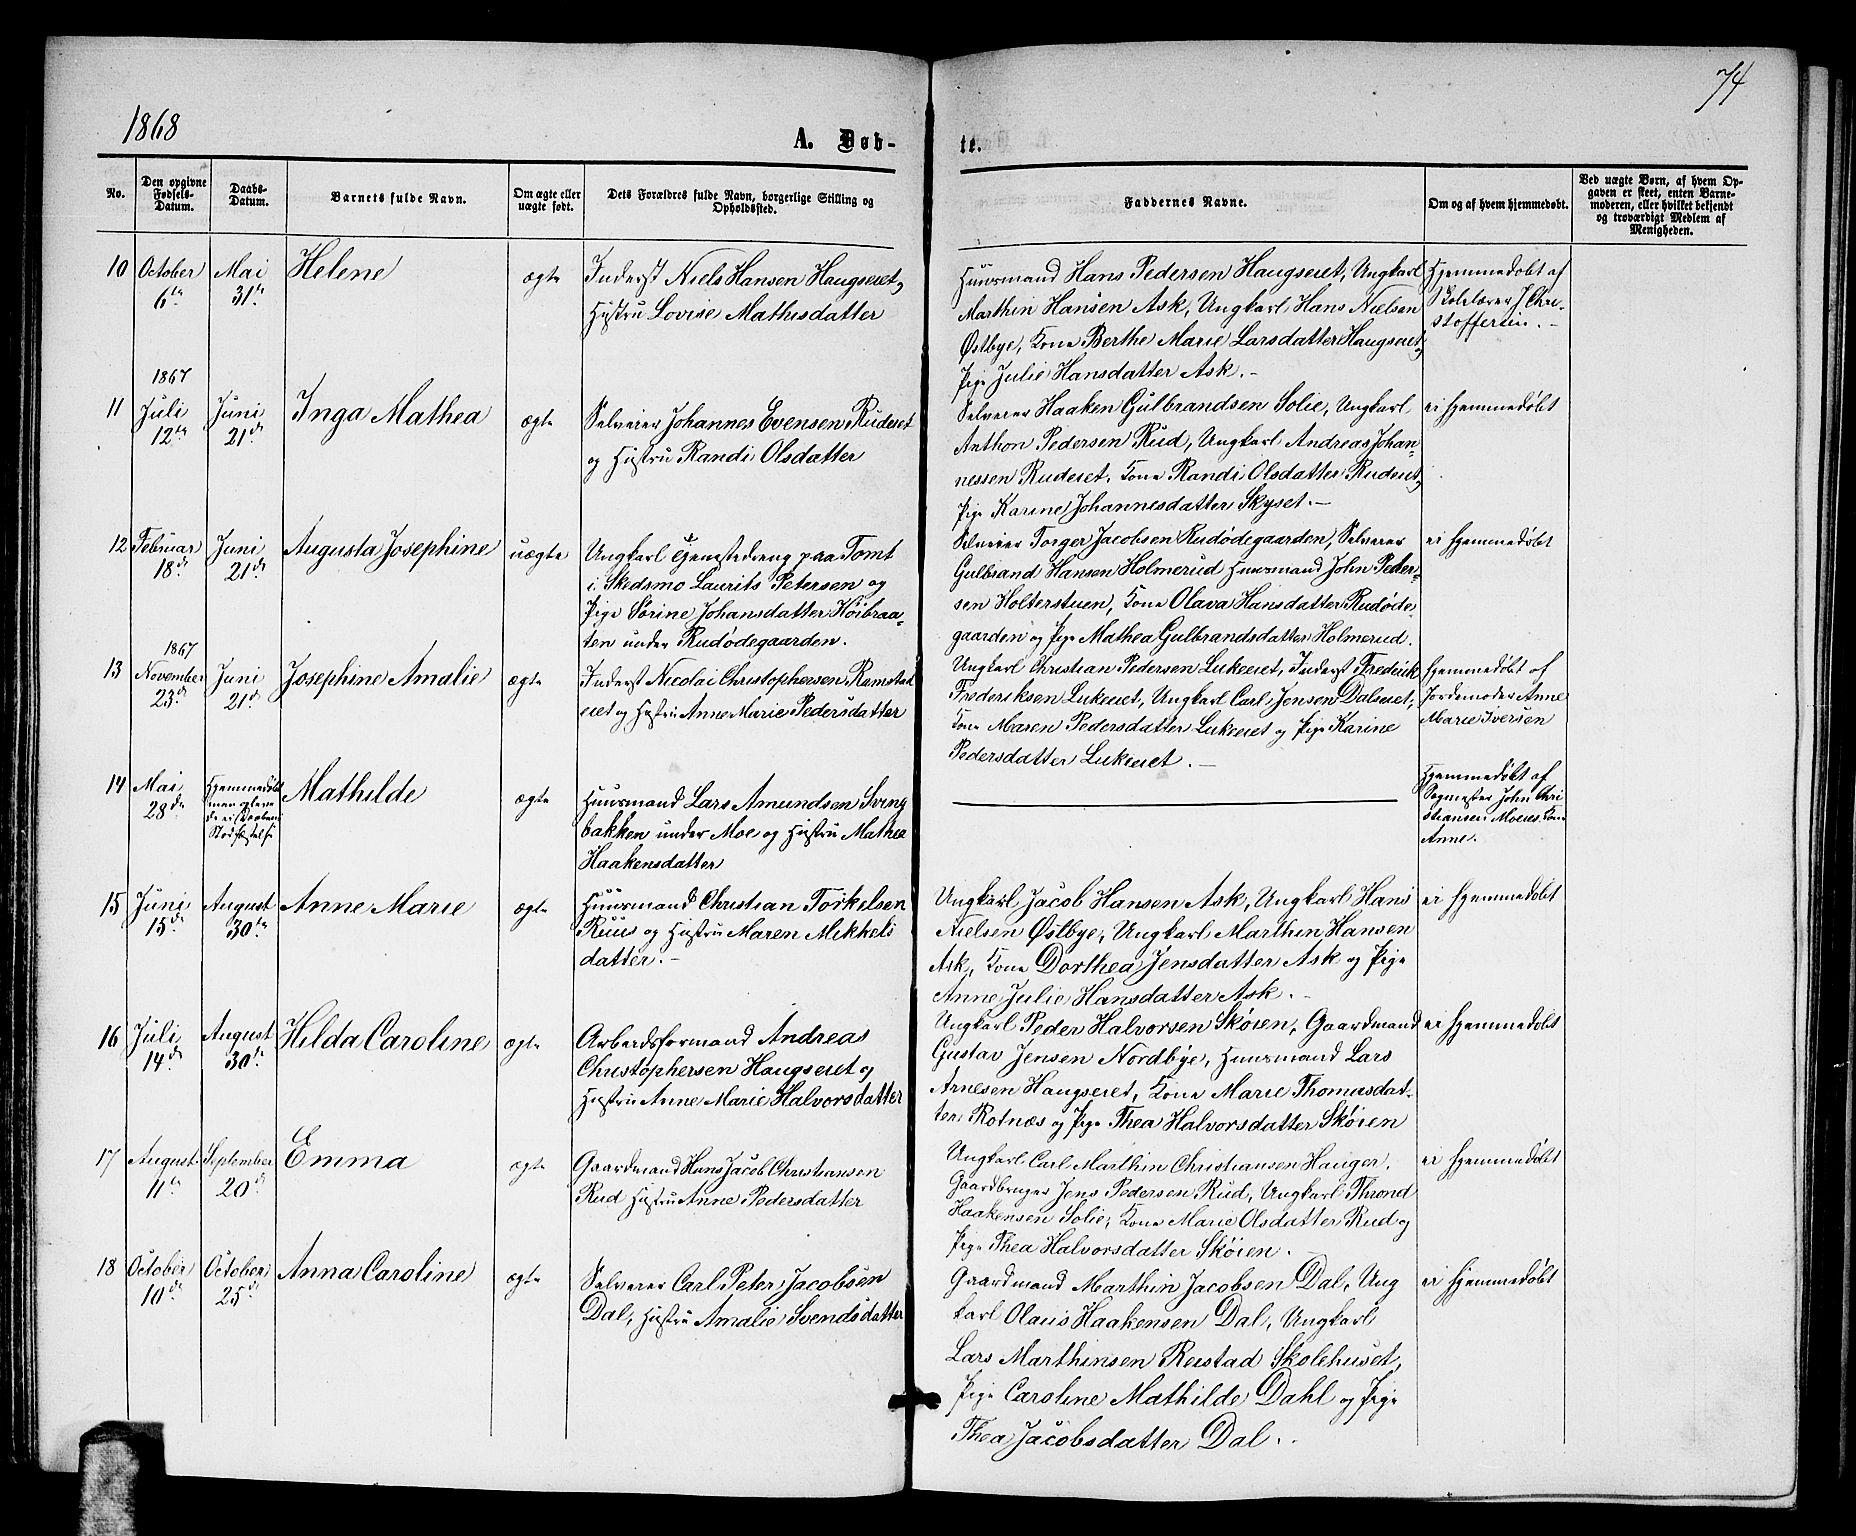 1868
A. Døb-
te.
74
No.
Den opgivne Fødsels-Datum.
Daabs-Datum.
Barnets fulde Navn.
Om ægte eller uægte født.
Dets Forældres fulde Navn, borgerlige Stilling og Opholdssted.
Faddernes Navne.
Om og af hvem hjemmedøbt.
Ved uægte Børn, af hvem Op-
gaven er skeet, enten Barne-
moderen, eller hvilket bekjendt
og troværdigt Medlem af
Menigheden.
10 October 6te Mai 31te Helene ægte
Inderst Niels Hansen Haugseret og
Hustru Lovise Mathisdatter
Huusmand Hans Pedersen Haugseret, Ungkarl
Marthin Hansen Ask, Ungkarl Hans Nielsen
Østbye, Kone Berthe Marie Larsdatter Haugseret og
Pige Julie Hansdatter Ask.
Hjemmedøbt af
Skolelærer J. Chri-
stoffersen.
1867
11 Juli 12te Juni 21de Inga Mathea ægte
Selveier Johannes Evensen Ruderet
og Hustru Randi Olsdatter
Selveier Haaken Gulbrandsen Solie, Ungkarl
Anthon Pedersen Rud, Ungkarl Andreas Johan-
nessen Ruderet, Kone Randi Olsdatter Ruderet og
Pige Karine Johannesdatter Skyset.
ei hjemmedøbt
12 Februar 18de Juni 21de Augusta Josephine uægte
Ungkarl Tjenestedreng paa Tomt
i Skedsmo Laurits Petersen og
Pige Sørine Johansdatter Høibraa-
ten under Rudødegaarden.
Selveier Torger Jacobsen Rudødegaarden, Selveier
Gulbrand Hansen Holmerud Huusmand John Peder-
sen Holterstuen, Kone Olava Hansdatter Rudøde-
gaarden og Pige Mathea Gulbrandsdatter Holmerud.
ei hjemmedøbt
1867
13 November 23de Juni 21de Josephine Amalie ægte
Inderst Nicolai Christophersen Ramstad
eiet og Hustru Anne Marie Pedersdatter
Ungkarl Christian Pedersen Lukeeiet, Inderst Frederik
Frederiksen Lukeeiet, Ungkarl Carl Jensen Dalseiet,
Kone Maren Pedersdatter Lukeeiet og Pige Karine
Pedersdatter Lukeeiet.
Hjemmedøbt af
Jordemoder Anne
Marie Iversen
14 Mai 28de
Hjemmedøbt
Mathilde ægte
Huusmand Lars Amundsen Sving
bakken under Moe og Hustru Mathea
Haakensdatter
Hjemmedøbt af
Sagmester John Chri
stiansen Moeeiet Kone
Anne.
15 Juni 15de August 30te Anne Marie ægte
Huusmand Christian Torkelsen
Ruus og Hustru Maren Mikkels
datter.
Ungkarl Jacob Hansen Ask, Ungkarl Hans
Nielsen Østbye, Ungkarl Marthin Hansen
Ask, Kone Dorthea Jensdatter Ask og Pige
Anne Julie Hansdatter Ask.
ei hjemmedøbt
16 Juli 14de August 30te Hilda Caroline ægte
Arbeidsformand Andreas
Christophersen Haugseret og
Hustru Anne Marie Halvorsdatter
Ungkarl Peder Halvorsen Skøien, Gaardmand
Gustav Jensen Nordbye, Huusmand Lars
Arnesen Haugseret, Kone Marie Thomasdat-
ter Rotnæs og Pige Thea Halvorsdatter Skøien
ei hjemmedøbt
17 August 11te September 20de Emma ægte
Gaardmand Hans Jacob Christiansen
Rud Hustru Anne Pedersdatter
Ungkarl Carl Marthin Christiansen Hauger,
Gaardbruger Jens Pedersen Rud, Ungkarl Thrond
Haakensen Solie, Kone Marie Olsdatter Rud og
Pige Thea Halvorsdatter Skøien.
ei hjemmedøbt
18 October 10de October 25de Anna Caroline ægte
Selveier Carl Peter Jacobsen
Dal, Hustru Amalie Svendsdatter
Gaardmand Marthin Jacobsen Dal, Ung
karl Olaus Haakensen Dal, Ungkarl
Lars Marthinsen Reistad Skolehuset,
Pige Caroline Mathilde Dahl og Pige
Thea Jacobsdatter Dal.
ei hjemmedøbt